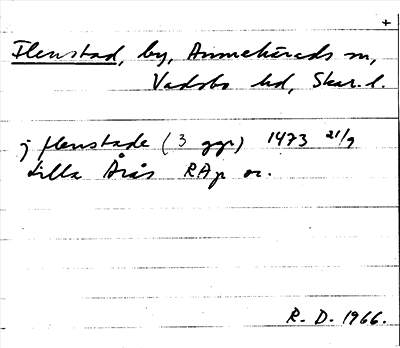 +
Flenstad, by, Amnehärads sn,
Vadsbo hd, Skar. l.
j flenstade (3 ggr) 1473 21/9
Lilla Årås RAp or.
R. D. 1966.